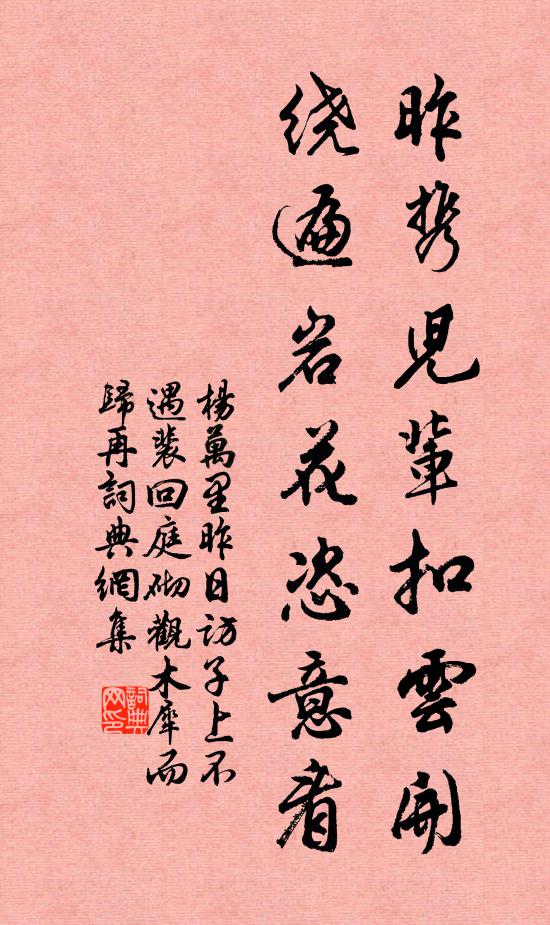 昨携兒輩扣雲開
绕遍岩花恣意看
楊萬里昨日訪子上不
遇裴回庭砌觀木犀而
歸再詞典網集
詞典網印